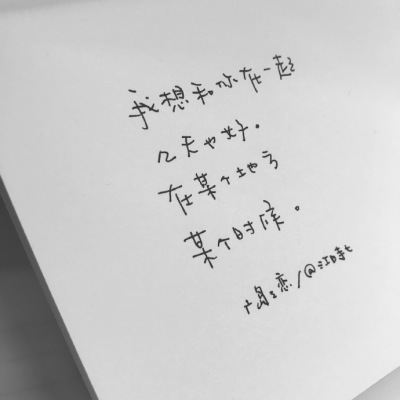 我想和你在一起
几天也好。
在某个地方
某个时候。
广岛之恋/@江